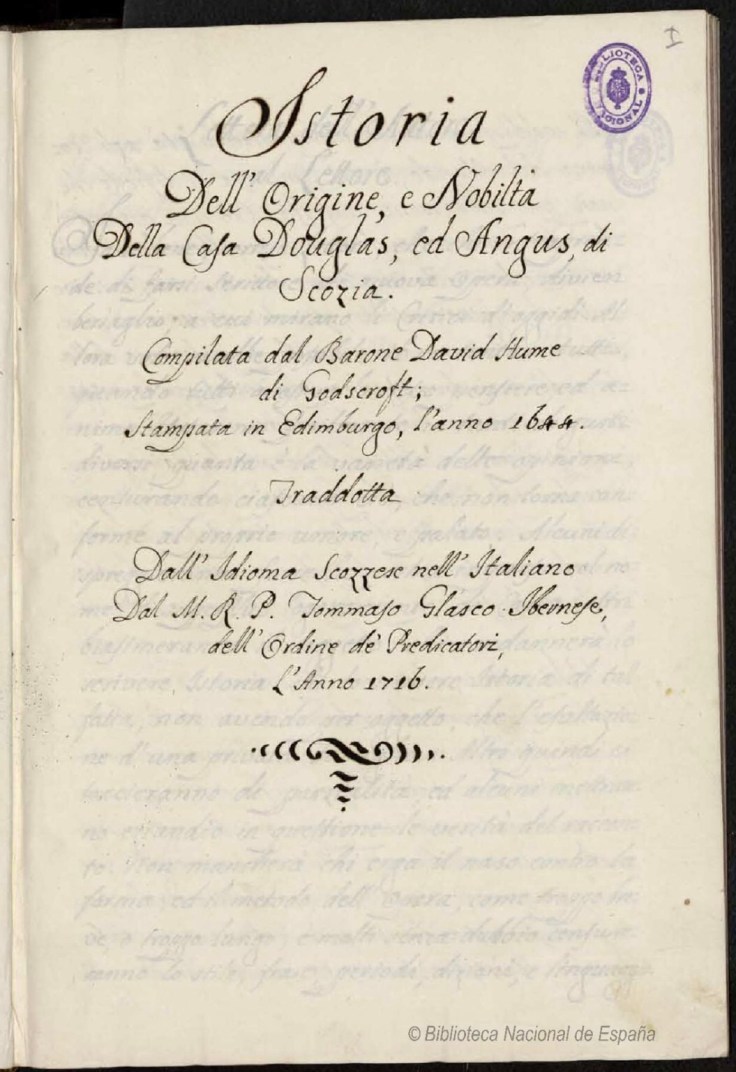 I
BIBLIOTECA NACIONAL
Istoria
Dell' Origine, e Nobiltà
Della Casa Douglas, ed Angus, di
Scozia.
Compilata dal Barone David Hume
di Godscroft;
Stampata in Edimburgo, l'anno 1644.
Traddotta
Dall' Idioma Scozzese nell' Italiano
Dal M. R. P. Tommaso Glasco Ibernese,
dell' Ordine de' Predicatori,
L'Anno 1716.
© Biblioteca Nacional de España